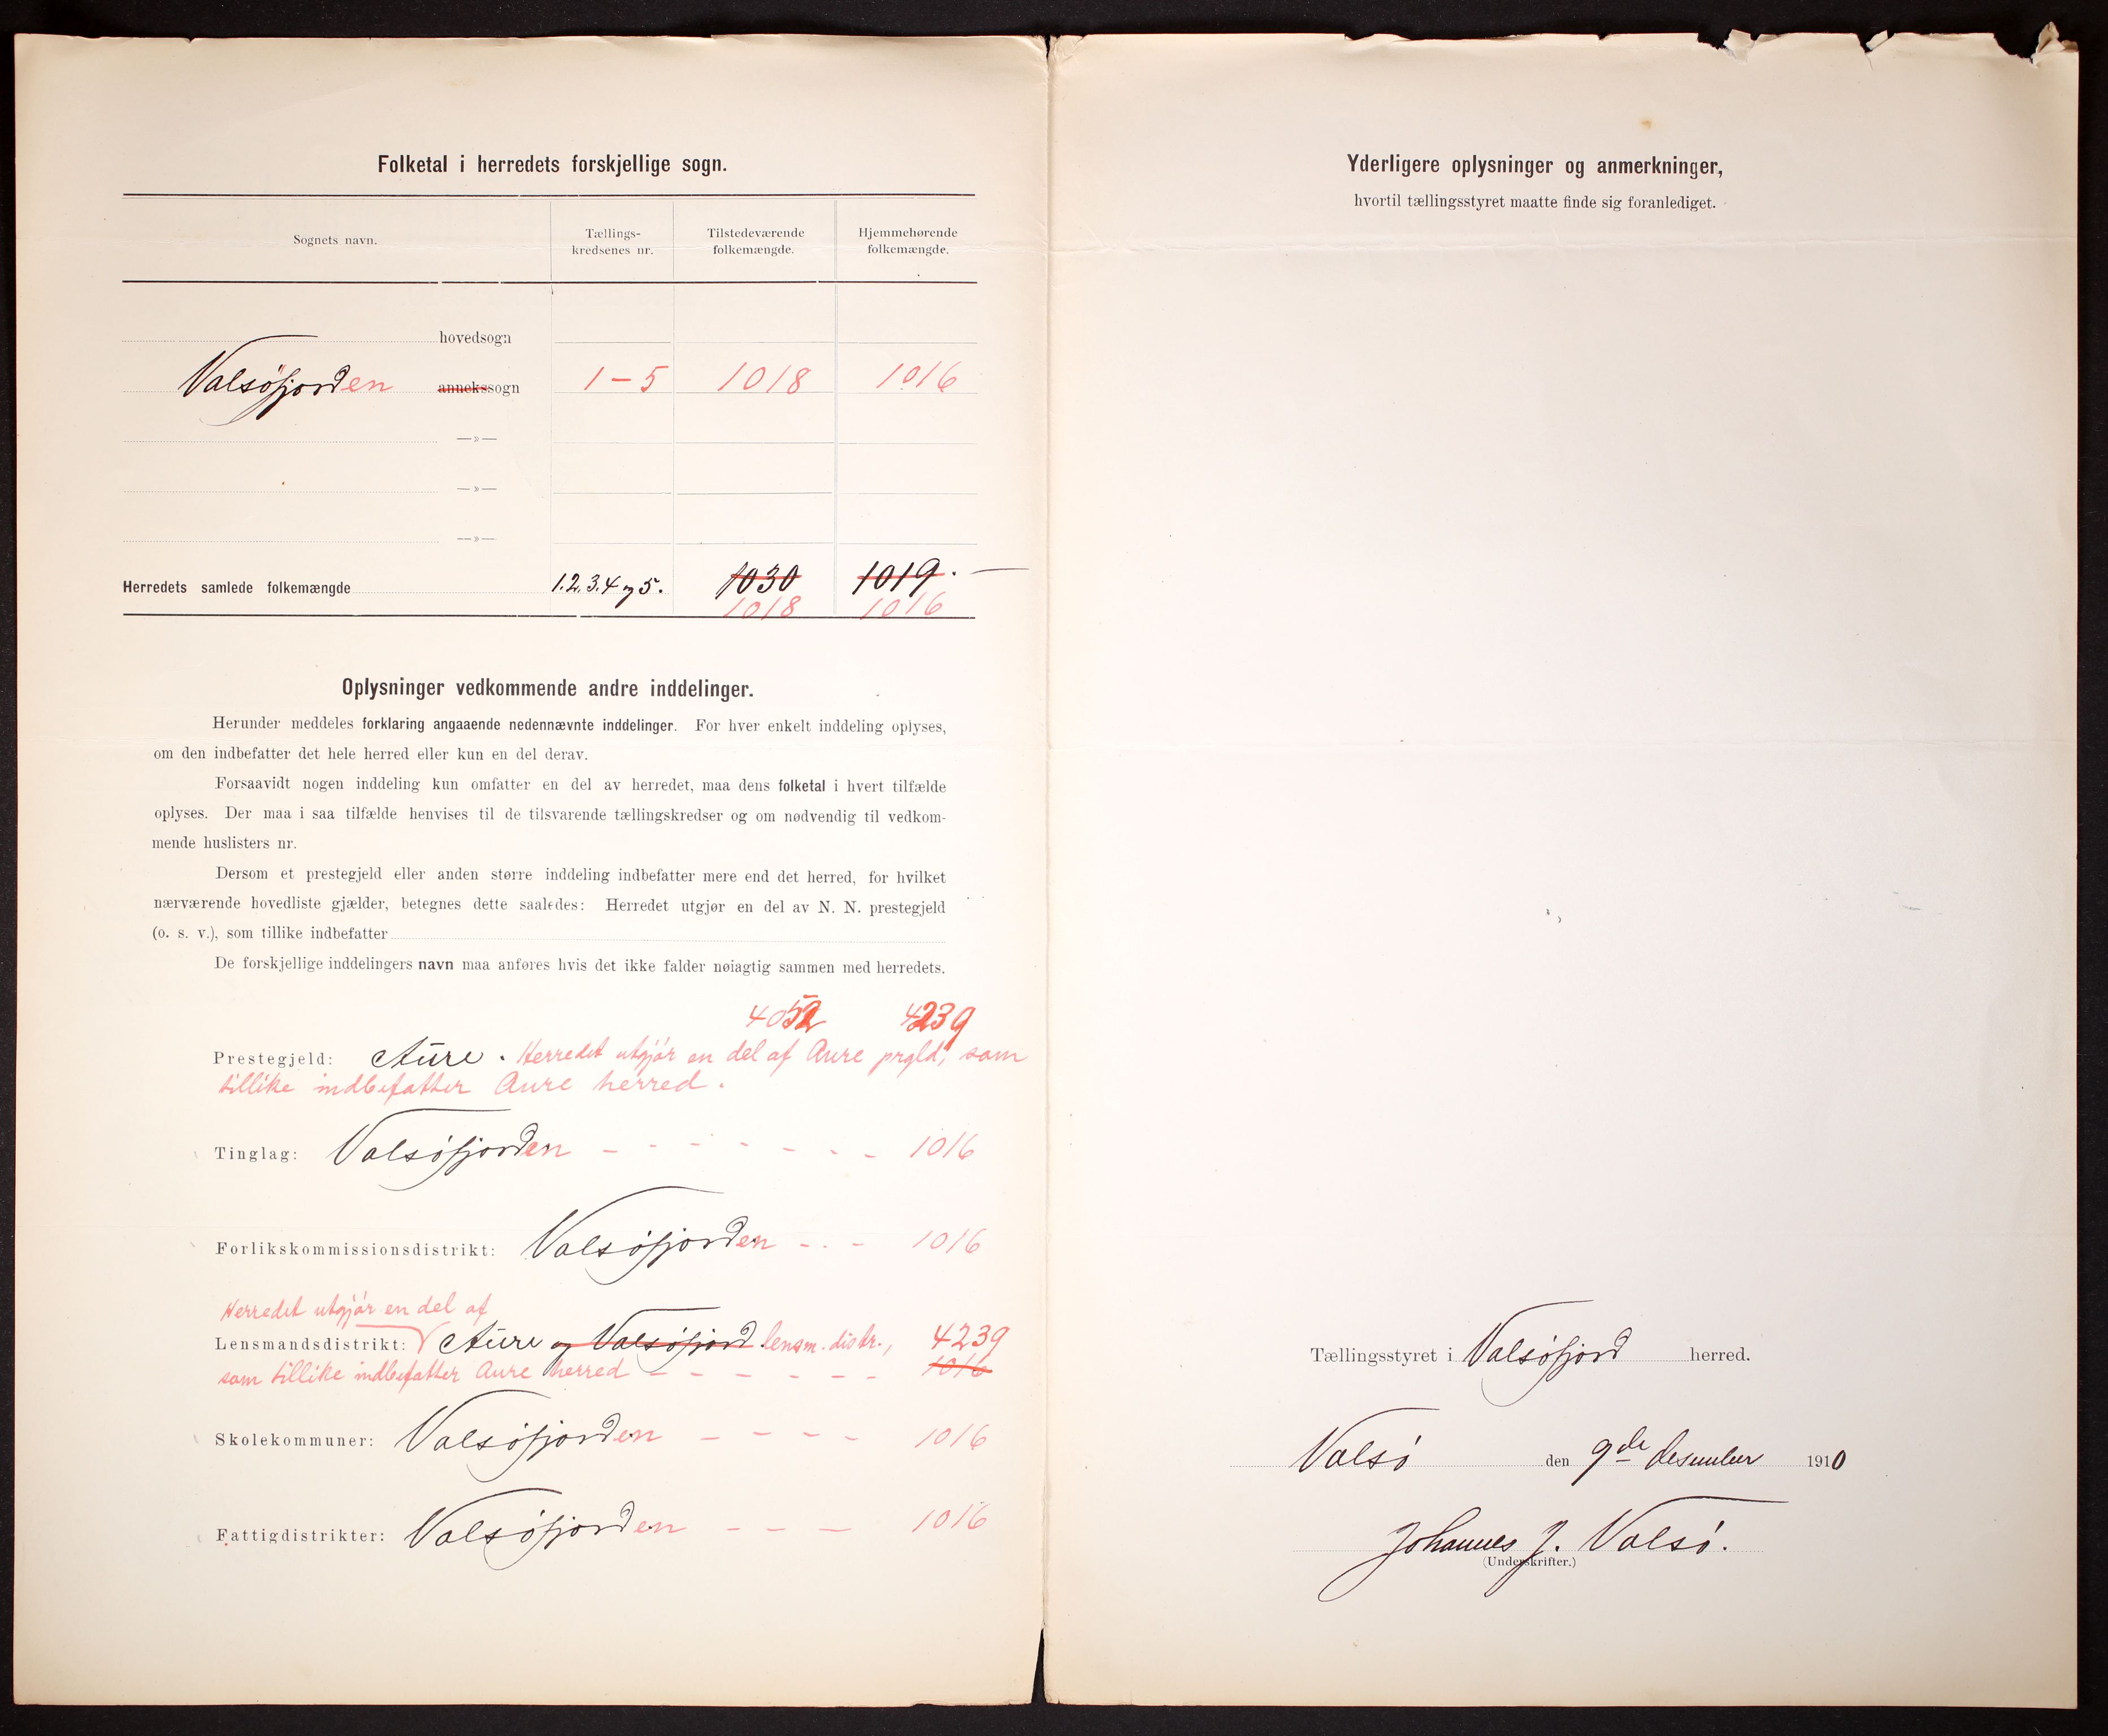 Folketal i herredets forskjellige sogn.
Sognets navn.
Tællings-
kredsenes nr.
Tilstedeværende
folkemængde.
Hjemmehørende
folkemængde.
hovedsogn
Valsöfjorden annekssogn 1-5 1018 1016
—»—
—»—
—»—
Herredets samlede folkemængde 1.2.3.4 og 5. 1030 1019.
1018 1016
Oplysninger vedkommende andre inddelinger.
Herunder meddeles forklaring angaaende nedennævnte inddelinger. For hver enkelt inddeling oplyses,
om den indbefatter det hele herred eller kun en del derav.
Forsaavidt nogen inddeling kun omfatter en del av herredet, maa dens folketal i hvert tilfælde
oplyses. Der maa i saa tilfælde henvises til de tilsvarende tællingskredser og om nødvendig til vedkom-
mende huslisters nr.
Dersom et prestegjeld eller anden større inddeling indbefatter mere end det herred, for hvilket
nærværende hovedliste gjælder, betegnes dette saaledes: Herredet utgjør en del av N. N. prestegjeld
(o. s. v.), som tillike indbefatter
De forskjellige inddelingers navn maa anføres hvis det ikke falder nøiagtig sammen med herredets.
4052 4239
Prestegjeld: Aure. Herredet utgjör en del af Aure prgld, som
tillike indbefatter Aure herred.
Tinglag: Valsöfjorden - - - - - - - 1016
Forlikskommissionsdistrikt: Valsöfjorden - - - 1016
Herredet utgjör en del af
Lensmandsdistrikt: Aure og Valsöfjord lensm. distr., 4239
som tillike indbefatter Aure herred - - - - - - 1016
Skolekommuner: Valsöfjorden - - - - 1016
Fattigdistrikter: Valsöfjorden - - - 1016
Yderligere oplysninger og anmerkninger,
hvortil tællingsstyret maatte finde sig foranlediget.
Tællingsstyret i Valsöfjord herred.
Valsö den 9de desember 1910
Johannes J. Valsö.
(Underskrifter.)